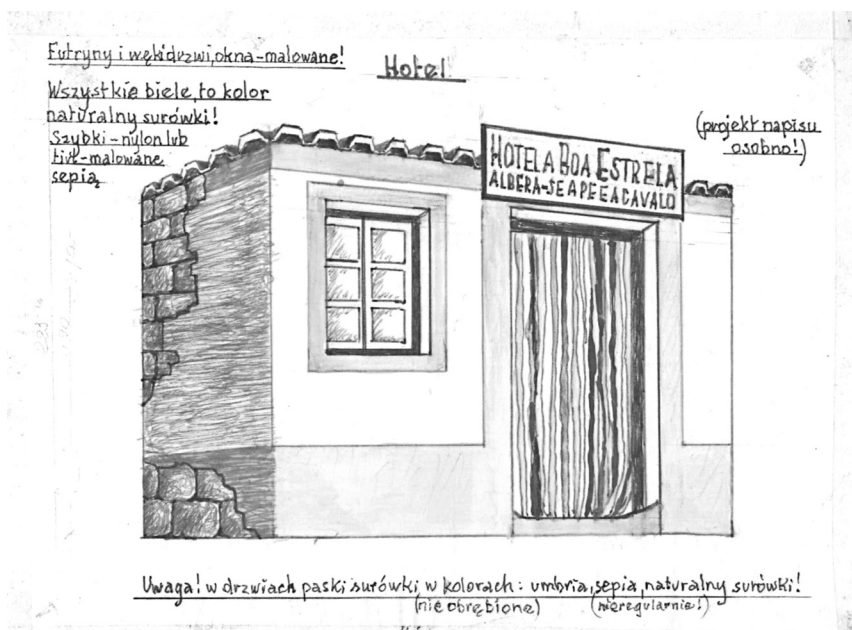 Futryny i węki drzwi, okna-malowane!
Hotel
Wszystkie biele, to kolor
naturalny surówki!
Szybki-nylon lub
tiul-malowane
sepią
(projekt napisu
osobno!)
HOTEL A BOA ESTRELA
ALBERA-SE A PE E A CAVALO
Uwaga! w drzwiach paski surówki w kolorach: umbria, sepia, naturalny surówki!
(nie obrębione)
(nieregularnie!)